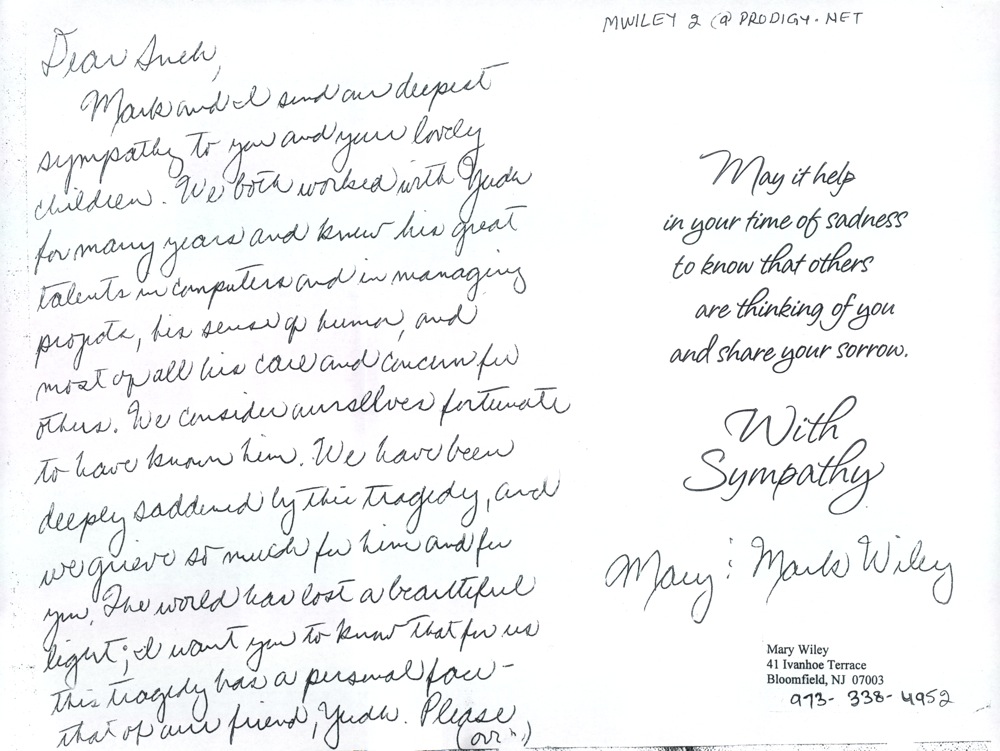 MWILEY 2 @ PRODIGY.NET
Dear
Mark and I send our deepest
sympathy to you and your lovely
children. We both worked with Yudh
for many years and knew his great
talents in computers and in managing
projects, his sense of humor, and
most of all his care and concern for
others. We consider ourselves fortunate
to have known him. We have been
deeply saddened by this tragedy, and
we grieve so much for him and for
you. The world has lost a beautiful
light; I want you to know that for us
this tragedy has a personal face -
that of our friend, Yudh. Please
(ovr)
May it help
in your time of sadness
to know that others
are thinking of you
and share your sorrow.
With
Sympathy
Mary & Mark Wiley
Mary Wiley
41 Ivanhoe Terrace
Bloomfield, NJ 07003
973-338-4952